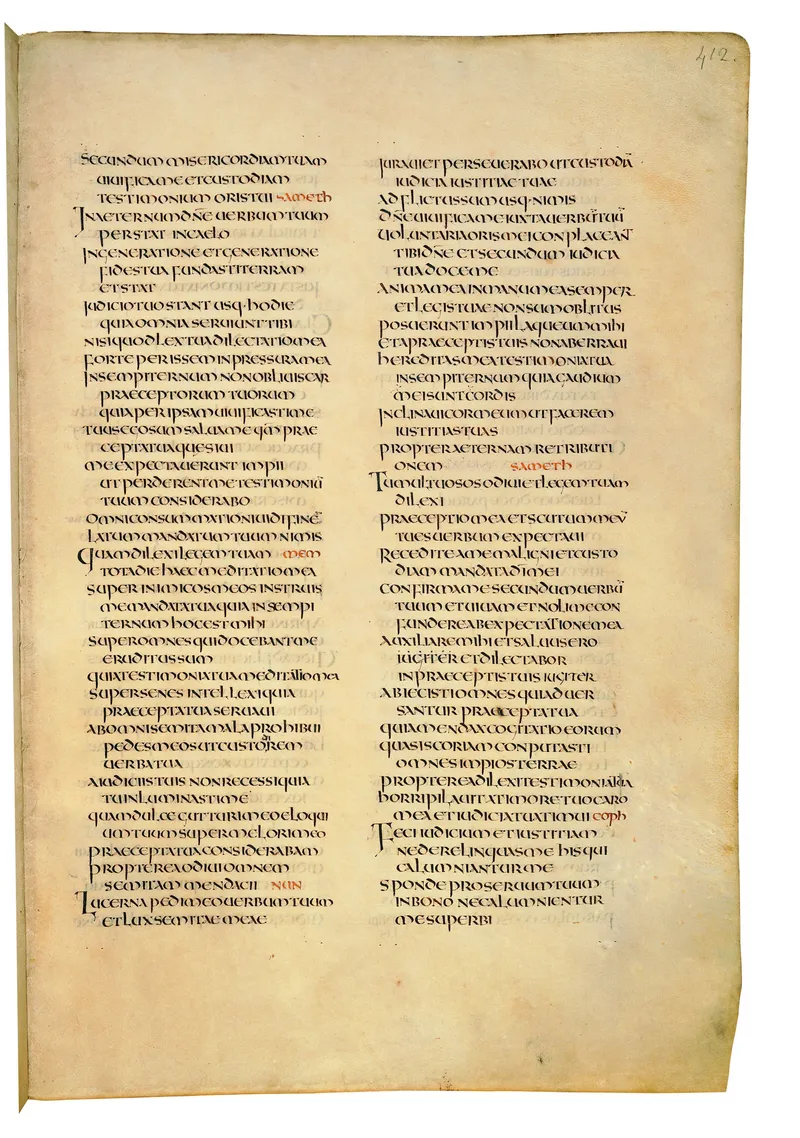 412.
SECUNDUM MISERICORDIAM TUAM
UIUIFICA ME ET CUSTODIAM
TESTIMONIUM ORIS TUI SAMETH
IN AETERNUM DÑE UERBUM TUUM
PERSTAT IN CAELO
IN GENERATIONE ET GENERATIONE
FIDES TUA FUNDASTI TERRAM
ET STAT
IUDICIO TUO STANT USQ· HODIE
QUIA OMNIA SERUIUNT TIBI
NISI QUOD LEX TUA DILECTATIO MEA
FORTE PERISSEM IN PRESSURA MEA
IN SEMPITERNUM NON OBLIUISCAR
PRAECEPTORUM TUORUM
QUIA PER IPSAM UIUIFICASTI ME
TUUS ECO SUM SALUA ME QM̄ PRAE
CEPTA TUA QUESIUI
ME EXPECTAUERUNT IMPII
UT PERDERENT ME TESTIMONIŪ
TUUM CONSIDERABO
OMNI CONSUMMATIONI UIDI FINĒ
LATUM MANDATUM TUUM NIMIS
QUAM DILEXI LEGEM TUAM MEM
TOTA DIE HAEC MEDITATIO MEA
SUPER INIMICOS MEOS INSTRUIS
ME MANDATA TUA QUIA IN SEMPI
TERNUM HOC EST MIHI
SUPER OMNES QUI DOCEBANT ME
ERUDITUS SUM
QUIA TESTIMONIA TUA MEDITATIO MEA
SUPER SENES INTELLEXI QUIA
PRAECEPTA TUA SERUAUI
AB OMNI SEMITA MALA PROHIBUI
PEDES MEOS UT CUSTODIREM
UERBA TUA
A IUDICIIS TUIS NON RECESSI QUIA
TU INLUMINASTI ME
QUAM DULCE GUTTURI MEO ELOQUI
UM TUUM SUPER MEL ORI MEO
PRAECEPTA TUA CONSIDERABAM
PROPTEREA ODIUI OMNEM
SEMITAM MENDACII NUN
LUCERNA PEDI MEO UERBUM TUUM
ET LUX SEMITAE MEAE
IURAUI ET PERSEUERABO UT CUSTODIĀ
IUDICIA IUSTITIAE TUAE
ADFLICTUS SUM USQ· NIMIS
DÑE UIUIFICA ME IUXTA UERBŪ TUŪ
UOLUNTARIA ORIS MEI CONPLACEANT
TIBI DÑE ET SECUNDUM IUDICIA
TUA DOCE ME
ANIMA MEA IN MANU MEA SEMPER
ET LEGIS TUAE NON SUM OBLITUS
POSUERUNT IMPII LAQUEUM MIHI
ET A PRAECEPTIS TUIS NON ABERRAUI
HEREDITAS MEA TESTIMONIA TUA
IN SEMPITERNUM QUIA GAUDIUM
MEI SUNT CORDIS
INCLINAUI COR MEUM UT FACEREM
IUSTITIAS TUAS
PROPTER AETERNAM RETRIBUTI
ONEM SAMETH
TUMULTUOSOS ODIUI ET LEGEM TUAM
DILEXI
PRAECEPTIO MEA ET SCUTUM MEU
TU ES UERBUM EXPECTAUI
RECEDITE A ME MALIGNI ET CUSTO
DIAM MANDATA DĪ MEI
CONFIRMA ME SECUNDUM UERBŪ
TUUM ET UIUAM ET NOLI ME CON
FUNDERE AB EXPECTATIONE MEA
AUXILIARE MIHI ET SALUUS ERO
IUGITER ET DILECTABOR
IN PRAECEPTIS TUIS IUGITER
ABIECISTI OMNES QUI ADUER
SANTUR PRAECEPTA TUA
QUIA MENDAX COGITATIO EORUM
QUASI SCORIAM CONPUTASTI
OMNES IMPIOS TERRAE
PROPTEREA DILEXI TESTIMONIA TUA
HORRIPILAUIT A TIMORE TUO CARO
MEA ET IUDICIA TUA TIMUI COPH
FECI IUDICIUM ET IUSTITIAM
NE DERELINQUAS ME HIS QUI
CALUMNIANTUR ME
SPONDE PRO SERUUM TUUM
IN BONO NE CALUMNIENTUR
ME SUPERBI